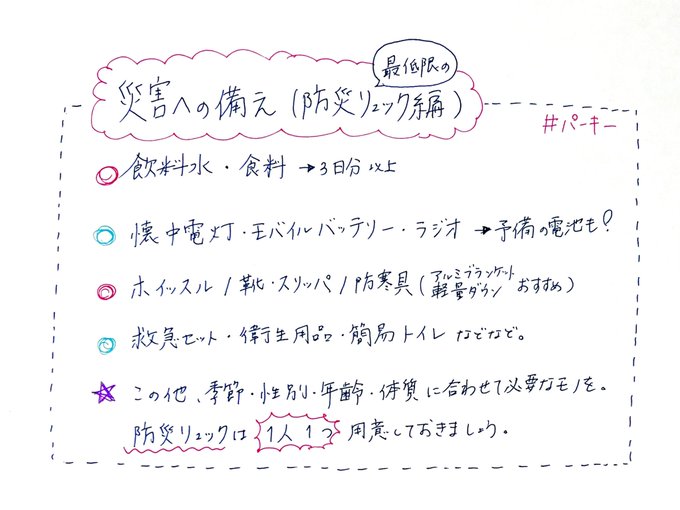 最低限の
災害への備え(防災リュック編)
#パーキー
飲料水・食料 → 3日分以上
懐中電灯・モバイルバッテリー・ラジオ → 予備の電池も?
ホイッスル/靴・スリッパ/防寒具(アルミブランケット 軽量ダウン おすすめ)
救急セット・衛生用品・簡易トイレ などなど。
この他、季節・性別・年齢・体質に合わせて必要なモノを。
防災リュックは 1人1つ 用意しておきましょう。